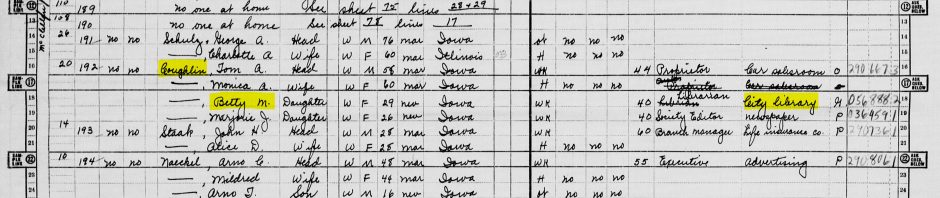 110 189 no one at home See sheet 72 lines 28 & 29
108 190 no one at home See sheet 78 lines 17
26 191 no no Schulz, George A. Head W M 76 mar Iowa ot no no no
——, Charlotte A Wife W F 60 mar Illinois H no no no
20 192 no no Coughlin, Tom A. Head W M 58 mar Iowa WK 44 Proprietor Car salesroom O 290 667 3
——, Monica A. Wife W F 60 mar Iowa H no no no Proprietor Car salesroom
——, Betty M. Daughter W F 29 nev Iowa WK 40 Librarian City library G 056 888 2
——, Marjorie J. Daughter W F 26 nev Iowa WK 40 Society Editor newspaper P 036 459 1
14 193 no no Staak, John H Head W M 28 mar Iowa WK 60 Branch manager Life insurance co. P 270 736 1
——, Alice D. Wife W F 25 mar Iowa H no no no
10 194 no no Naeckel, Arno C. Head W M 48 mar Iowa WK 55 Executive advertising P 290 806 1
——, Mildred Wife W F 44 mar Iowa H no no no
——, Arno T. Son W M 16 nev Iowa ot no no no